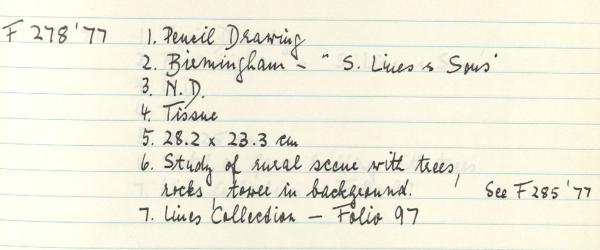 F 278'77 1. Pencil Drawing
2. Birmingham - "S. Lines & Sons"
3. N.D.
4. Tissue
5. 28.2 x 23.3 cm
6. Study of rural scene with trees,
rocks, tower in background. See F285'77
7. Lines Collection - Folio 97